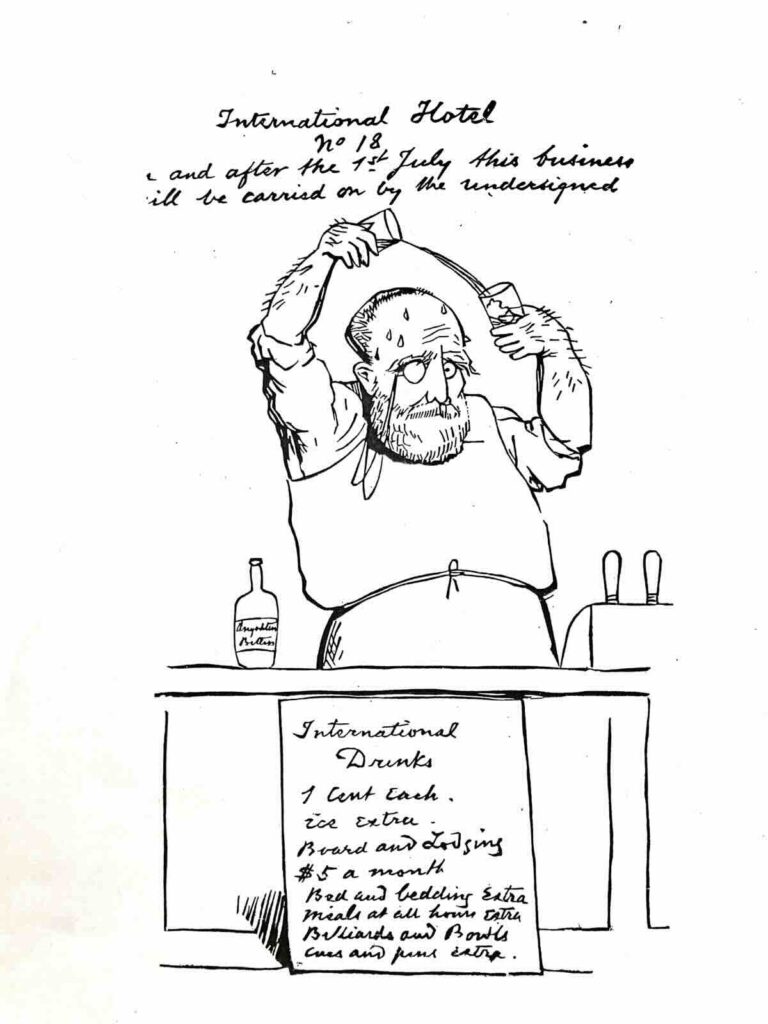 International Hotel
No 18
and after the 1st July this business
ill be carried on by the undersigned
Bitters
International
Drinks
1 Cent Each.
ice extra.
Board and Lodging
$5 a month
Bed and bedding Extra
Meals at all hours Extra
Billiards and Bowls
cues and pins extra.